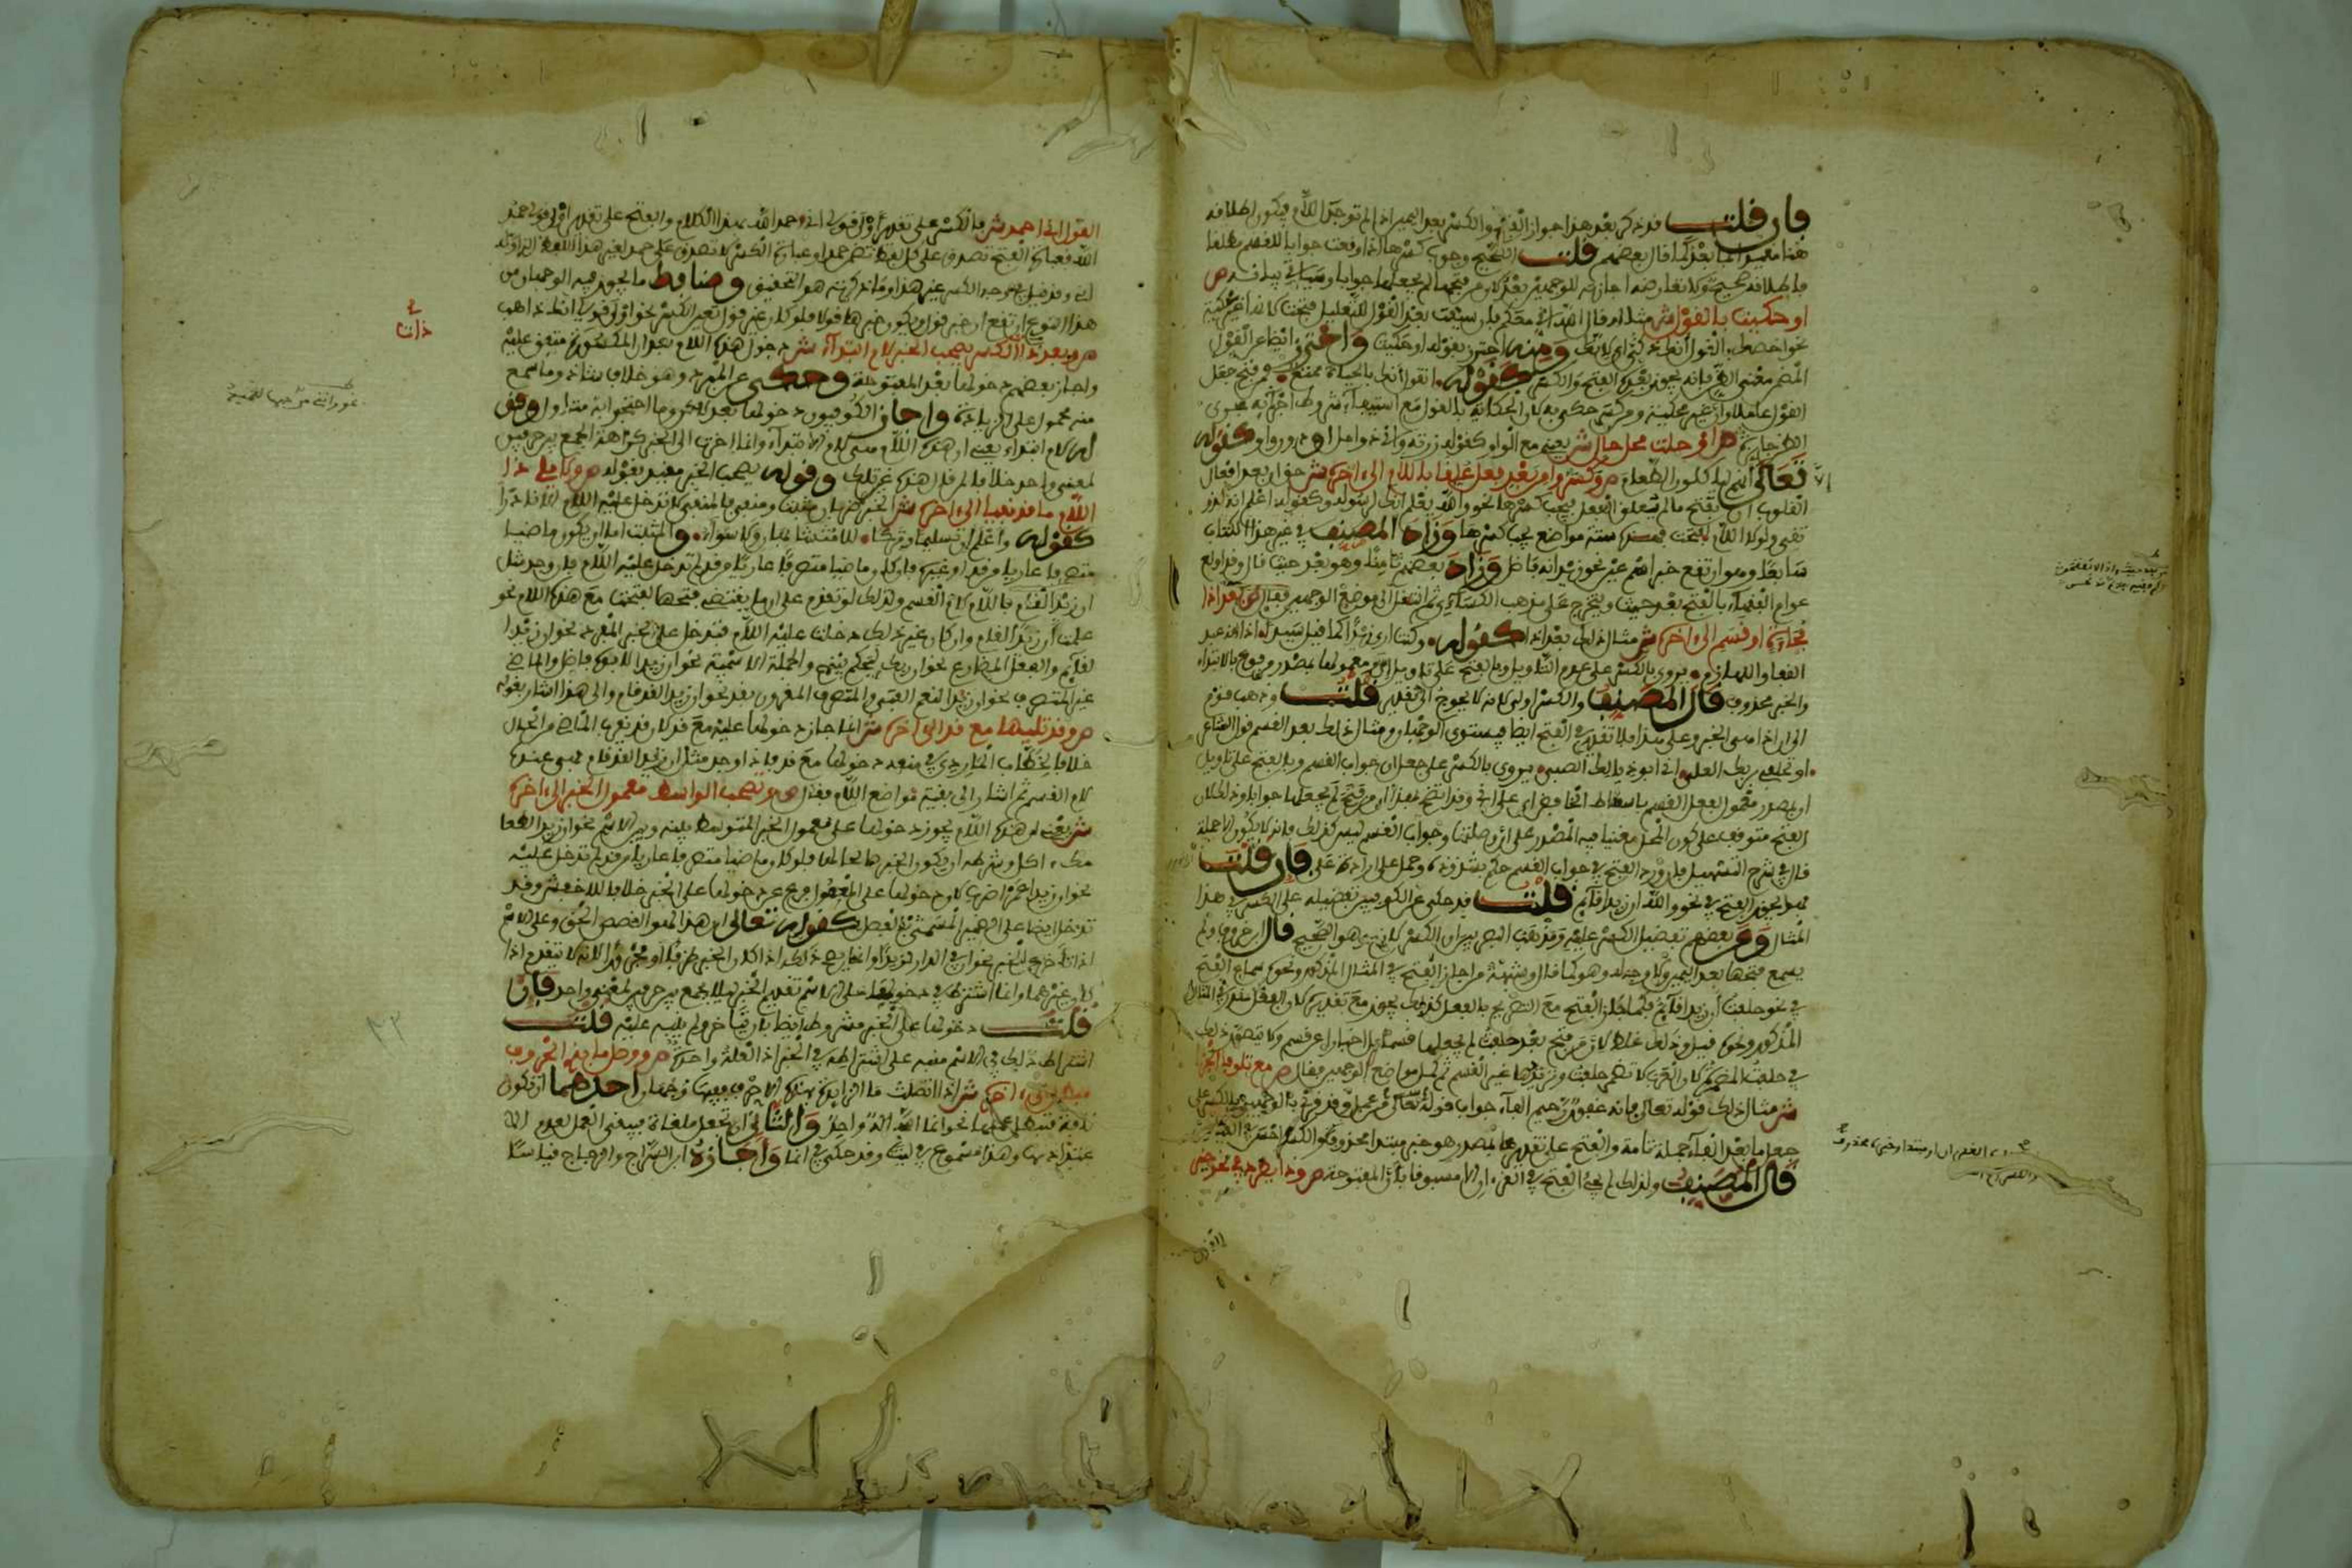 فان قلت قد ذكر بعد هذا جواز الفتح والكسر بعد اليمين اذا لم توجد اللام فيكون اطلاقه
هنا مقيدا بما بعد كما قال بعضهم قلت الصحيح وجوب كسرها اذا وقعت جوابا للقسم مطلقا
فاطلاقه صحيح ولا تعارضه اجازته للوجهين بعد لان من فتحها لم يجعلها جوابا وسياتي بيانه ص
او حكيت بالقول ش مثاله قال الله اني معكم فان سيقت بعد القول للتعليل فتحت لانها غير محكية
نحو اخصك بالقول انك ذكي اي لانك ومنه احترز بقوله او حكيت واحترز ايضا من القول
المضمن معنى الظن فانه يجوز بعده الفتح والكسر كقوله اتقول انك بالحياة ممتع فمن فتح جعل
القول عاملا وان غير محكية ومن كسر حكى به لان الحكاية بالقول مع استيفاء شروط اجرائه مجرى
الظن جايزة ص او حلت محل حال ش يعني مع الواو كقوله زرته واني ذو امل او دون واو كقوله
تعالى الا انهم لياكلون الطعام ص وكسروا من بعد فعل علقا باللام الى اخره ش حق ان بعد افعال
القلوب ان تفتح ما لم يتعلق الفعل فيجب كسرها نحو والله يعلم انك لرسوله وكقوله اعلم انه لذو
تقى ولولا اللام لفتحت فهذه ستة مواضع يجب كسرها وزاد المصنف في غير هذا الكتاب
سابعا وهو ان تقع خبر اسم عين نحو زيد انه فاضل وزاد بعضهم ثامنا وهو بعد حيث قال وقد اولع
عوام الفقهاء بالفتح بعد حيث ويتخرج على مذهب الكسائي ثم انتقل الى موضع الوجهين فقال ص بعد اذا
فجاءة او قسم الى اخره ش مثال ذلك بعد اذا كقوله وكنت ارى زيدا كما قيل سيدا اذا انه عبد
القفا واللهازم يروى بالكسر على عدم التاويل وبالفتح على تاويل ان ومعمولها بمصدر مرفوع بالابتداء
والخبر محذوف قال المصنف والكسر اولى لانه لا يحوج الى تقدير قلت وذهب قوم
الى ان اذا هي الخبر وعلى هذا فلا تقدير في الفتح ايضا فيستوي الوجهان ومثال ذلك بعد القسم قول الشاعر
او تحلفي بربك العلي اني ابو ذيالك الصبي يروى بالكسر على جعل ان جواب القسم وبالفتح على تاويل
ان بمصدر معمول لفعل القسم باسقاط الخافض اي على اني وقد اتضح بهذا ان من فتح لم يجعلها جوابا وذلك لان
الفتح متوقف على كون المحل مغنيا فيه المصدر على ان وصلتها وجواب القسم ليس كذلك فانه لا يكون الا جملة
قال في شرح التسهيل فان ورد الفتح في جواب القسم حكم بشذوذه وحمل على ارادة على فان قلت
فهل يجوز الفتح في نحو والله ان زيدا قايم قلت قد حكي عن الكوفيين تفضيله على الكسر في هذا
المثال وعن بعضهم تفضيل الكسر عليه ومذهب البصريين ان الكسر لازم وهو الصحيح قال ابن خروف ولم
يسمع فتحها بعد اليمين ولا وجه له وهو كما قال وشبهة من اجاز الفتح في المثال المذكور ونحوه سماع الفتح
في نحو حلفت ان زيدا قايم فكما جاز الفتح مع التصريح بالفعل كذلك يجوز مع تقديره لان الفعل مقدر في المثال
المذكور ونحوه قيل وذلك غلط لان من فتح بعد حلفت لم يجعلها قسما بل اخبارا عن قسم ولا يتصور ذلك
في حلفت المضمر لان العرب لا تضمر حلفت وتريد بها غير القسم ثم كمل مواضع الوجهين فقال ص مع تلو فا الجزا
ش مثال ذلك قوله تعالى فانه غفور رحيم الفاء جواب قوله تعالى من عمل وقد قرئ بالوجهين فالكسر على
جعل ما بعد الفاء جملة تامة والفتح على تقديرها بمصدر هو خبر مبتدا محذوف والكسر احسن في القياس
قال المصنف ولذلك لم يجئ الفتح في القرءان الا مسبوقا بان المفتوحة ص وذا يطرد في نحو خير
القول اني احمد ش فالكسر على تقدير اول قولي اني احمد الله بهذا الكلام والفتح على تقدير اول قولي حمد
الله فعبارة الفتح تصدق على كل لفظ تضمن حمدا وعبارة الكسر لا تصدق على حمد بغير هذا اللفظ الذي اوله
اني وقد قيل في توجيه الكسر غير هذا وما ذكرته هو التحقيق وضابط ما يجوز فيه الوجهان من
هذا النوع ان تقع ان خبر قول ويكون خبرها قولا فلو كان غير قول تعين الكسر نحو اول قولي انك ذاهب
ص وبعد ذات الكسر تصحب الخبر لام ابتداء ش دخول هذه اللام بعد ان المكسورة متفق عليه
واجاز بعضهم دخولها بعد المفتوحة وحكي عن المبرد وهو خلاف شاذ وما سمع
منه محمول على الزيادة واجاز الكوفيون دخولها بعد لكن وما احتجوا به متاول وقوله
لام ابتداء يعني ان هذه اللام هي لام الابتداء وانما اخرت الى الخبر كراهة الجمع بين حرفين
لمعنى واحد خلافا لمن قال هذه غير تلك وقوله تصحب الخبر مقيد بقوله ص ولا يلي ذا
اللام ما قد نفيا الى اخره ش الخبر ضربان مثبت ومنفي فالمنفي لا تدخل عليه اللام الا نادرا
كقوله واعلم ان تسليما وتركا للا متشابهان ولا سواء والمثبت اما ان يكون ماضيا
متصرفا عاريا من قد او غيره فان كان ماضيا متصرفا عاريا من قد لم تدخل عليه اللام فان وجد مثل
ان زيدا لقام فاللام لام القسم ولذلك لو تقدم على ان ما يقتضي فتحها لفتحت مع هذه اللام نحو
علمت ان زيدا لقام وان كان غير ذلك دخلت عليه اللام فتدخل على الخبر المفرد نحو ان زيدا
لقايم والفعل المضارع نحو ان ربك ليحكم بينهم والجملة الاسمية نحو ان زيدا لابوه فاضل والماضي
غير المتصرف نحو ان زيدا لنعم الفتى والمتصرف المقرون بقد نحو ان زيدا لقد قام والى هذا اشار بقوله
ص وقد تليها مع قد الى اخره ش انما جاز دخولها عليه مع قد لان قد تقرب الماضي من الحال
خلافا لخطاب الماردي في منعه دخولها مع قد فاذا وجد مثل ان زيدا لقد قام فهي عنده
لام القسم ثم اشار الى بقية مواضع اللام فقال ص وتصحب الواسط معمول الخبر الى اخره
ش يعني ان هذه اللام يجوز دخولها على معمول الخبر المتوسط بينه وبين الاسم نحو ان زيدا لطعا
مك ءاكل وشرطه ان يكون الخبر صالحا لها فلو كان ماضيا متصرفا عاريا من قد لم تدخل عليه
نحو ان زيدا عمرا ضرب لان دخولها على المعمول فرع عن دخولها على الخبر خلافا للاخفش وقد
تدخل ايضا على الضمير المسمى بالفصل كقوله تعالى ان هذا لهو القصص الحق وعلى الاسم
اذا تاخر عن الخبر نحو ان في الدار لزيدا وانما يصح ذلك اذا كان الخبر ظرفا او مجرورا لانه لا يتقدم اذا
كان غيرهما وانما اشترط في دخولها على الاسم تقديم الخبر ليلا يجمع بين حرفين لمعنى واحد فان
قلت دخولها على الخبر مشروط ايضا بان يتاخر ولم ينبه عليه قلت
اشتراط ذلك في الاسم منبه على اشتراطه في الخبر اذ العلة واحدة ص ووصل ما بذي الحروف
مبطل الى ءاخره ش اذا اتصلت ما الزايدة بهذه الاحرف ففيها وجهان احدهما ان تكون
كافة فتبطل عملها نحو انما الله اله واحد والثاني ان تجعل ملغاة فيبقى العمل لعدم الا
عتداد بها وهذا مسموع في ليت وقد حكي في انما واجازه ابن السراج والزجاج قياسا
ذات